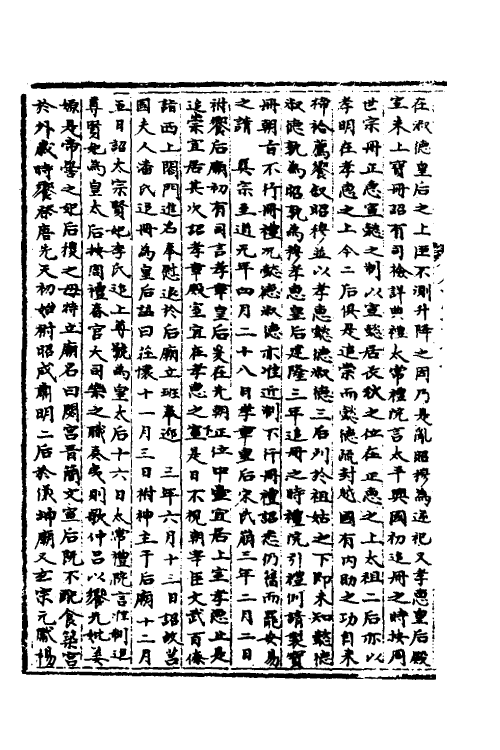 在淑德皇后之上匪不測升降之因乃是亂昭穆為逆祀又孝惠皇后殿
室未上寶冊詔有司檢詳典禮太常禮院言太平興國初追冊之時按周
世宗冊正惠宣懿之制以宣懿居長秋之位在正惠之上太祖二后亦以
孝明在孝惠之上今二后俱是追崇而懿德疏封越國有内助之功自来
禘祫薦饗叙昭穆並以孝惠懿德淑德三后列於祖姑之下即未知懿德
淑德孰為昭孰為穆孝惠皇后建隆三年追冊之時禮院引禮例請製寶
冊朝旨不行冊禮况懿德淑德亦准近制不行冊禮詔悉仍舊而罷安易
之請 真宗至道元年四月二十八日孝章皇后宋氏崩三年二月二日
祔饗后廟初有司言孝章皇后是在先朝正位中壷宜居上室孝惠止是
追崇宜居其次詔孝章殿室宜在孝惠之室下是日不視朝宰臣文武百僚
詣西上閤門進名奉慰退於后廟立班奉迎 三年六月十三日詔故莒
國夫人潘氏追冊為皇后諡曰莊懷十一月三日祔神主于后廟十二月
五日詔太宗賢妃李氏追上尊號為皇太后十六日太常禮院言准制追
尊賢妃為皇太后按周禮春官大司樂之職奏夷則歌仲吕以饗先妣姜
嫄是帝嚳之妃后稷之母特立廟名曰閟宫晋簡文宣后既不配食築宫
於外歲時饗祭唐先天初始祔昭成肅明二后於儀坤廟又玄宗元獻楊